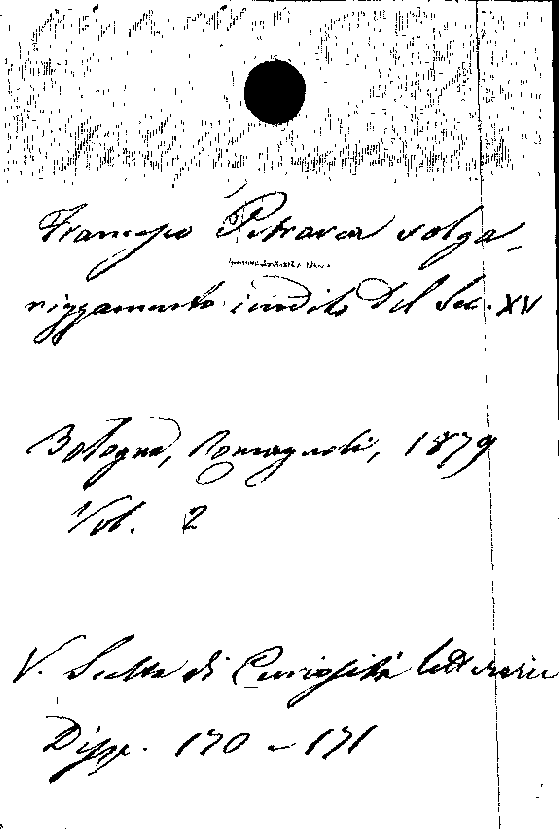 Francesco Petrarca volga-
rizzamento inedito del Sec. XV
Bologna, Romagnoli, 1879
Vol. 2
V. Scelta di Curiosità letterarie
Disp. 170-171